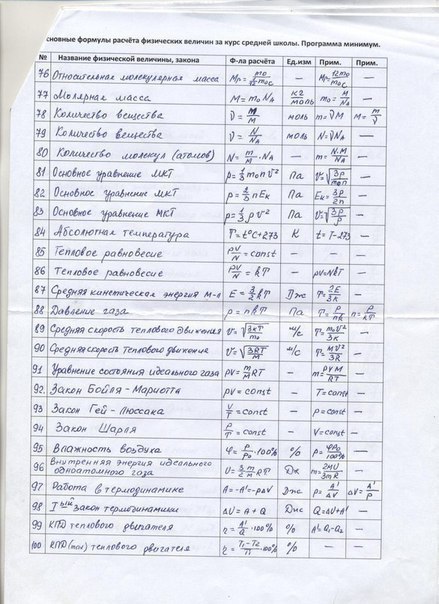 сновные формулы расчёта физических величин за курс средней школы. Программа минимум.
№ Название физической величины, закона Ф-ла расчёта Ед.изм Прим. Прим.
76 Относительная молекулярная масса Mr = m₀ / (1/12 m₀c) — —
77 Молярная масса M = m₀ N_A кг/моль m₀ = M/N_A —
78 Количество вещества ν = m/M моль m = νM M = m/ν
79 Количество вещества ν = N/N_A моль N = νN_A —
80 Количество молекул (атомов) N = m/M · N_A — m = N·M/N_A —
81 Основное уравнение МКТ p = 1/3 m₀nv² Па v = √(3p/m₀n) —
82 Основное уравнение МКТ p = 2/3 nE_K Па E_K = 3p/2n —
83 Основное уравнение МКТ p = 1/3 ρv² Па v = √(3p/ρ) —
84 Абсолютная температура T = t°C+273 K t = T-273 —
85 Тепловое равновесие pV/N = const — — —
86 Тепловое равновесие pV/N = kT — pV=NkT —
87 Средняя кинетическая энергия м-л E = 3/2 kT Дж T = 2E/3k —
88 Давление газа p = nkT Па T = p/nk n = p/kT
89 Средняя скорость теплового движения v = √(3kT/m₀) м/с T = m₀v²/3k —
90 Средняя скорость теплового движения v = √(3RT/M) м/с T = Mv²/3R —
91 Уравнение состояния идеального газа pV = m/M RT — m = pVM/RT —
92. Закон Бойля-Мариотта pV = const — T = const —
93 Закон Гей-Люссака V/T = const — p = const —
94 Закон Шарля p/T = const — V = const —
95 Влажность воздуха φ = p/p₀ · 100% % p = φp₀/100% —
96 Внутренняя энергия идеального
одноатомного газа U = 3/2 m/M RT Дж —
97 Работа в термодинамике A = -A' = -pΔV Дж p = A'/ΔV ΔV = A'/p
98 Iый закон термодинамики ΔU = A + Q Дж Q = ΔU+A' —
99 КПД теплового двигателя η = A'/Q₁ · 100% % A' = Q₁-Q₂ —
100 КПД(max) теплового двигателя η = (T₁-T₂)/T₁ · 100% % — —